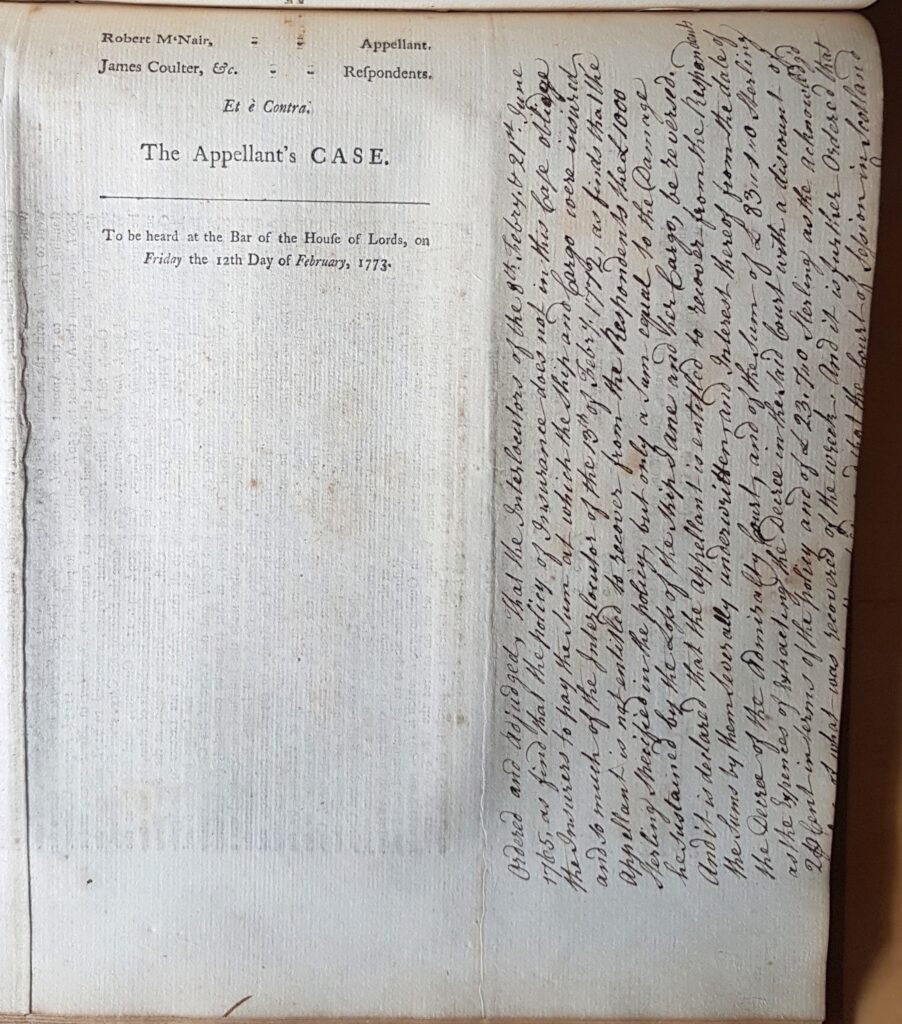 Robert McNair, = = Appellant.
James Coulter, &c. - - Reſpondents.
Et è Contra.
The Appellant's CASE.
To be heard at the Bar of the Houſe of Lords, on
Friday the 12th Day of February, 1773.
Ordered and Adjudged, That the Interlocutors of the 8th. Febry & 21st. June
1765 as find that the policy of Insurance does not in this Case oblige
the Insurers to pay the sum at which the Ship and Cargo were insured
and so much of the Interlocutor of the 13th of Febry. 1772, as finds that the
Appellant is not entitled to recover from the Respondents the £1000
Sterling specified in the policy, but only a Sum equal to the Damage
he sustained by the Loss of the ship Jane and her Cargo, be reversed.
And it is declared that the Appellant is entitled to recover from the Respondents
the Sums by them severally underwritten, and Interest thereof from the date of
the Decree of the Admiralty Court, and of the Sum of £83.1.10 Sterling
as the Expences of extracting the Decree in the said Court with a discount of
2 ℔ Cent in terms of the policy and of £23.7.10 Sterling as the acknowledged
of what was recovered of the wreck. And it is further Ordered that
that the Court of Session in Scotland